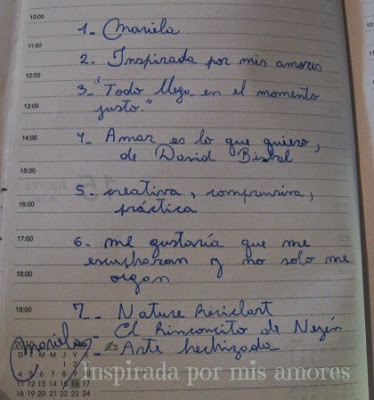 10:00
1_ Mariela
11:00
2. Inspirada por mis amores
12:00
3_ "Todo llega en el momento
13:00
justo."
14:00
4_ Amar es lo que quiero,
de David Bisbal
15:00
5. creativa, comprensiva,
16:00
práctica
17:00
6. me gustaría que me
escucharan y no solo me
18:00
oigan
19:00
7_ Nature Reciclart
El Rinconcito de Nezén
Arte hechizada
Mariela
D L M M J V S
1 2
4 5 6 7 8 9
11 12 13 14 15 16 17
inspirada por mis amores